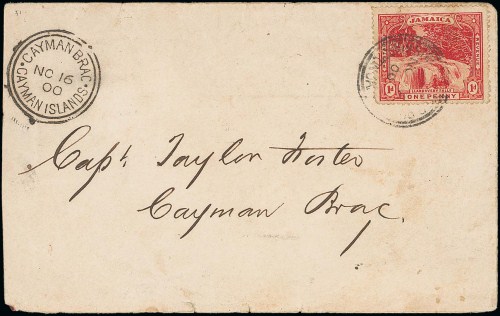 CAYMAN BRAC
NO 16
00
CAYMAN ISLANDS
JAMAICA
1d ONE PENNY 1d
Capt. Taylor Foster
Cayman Brac.